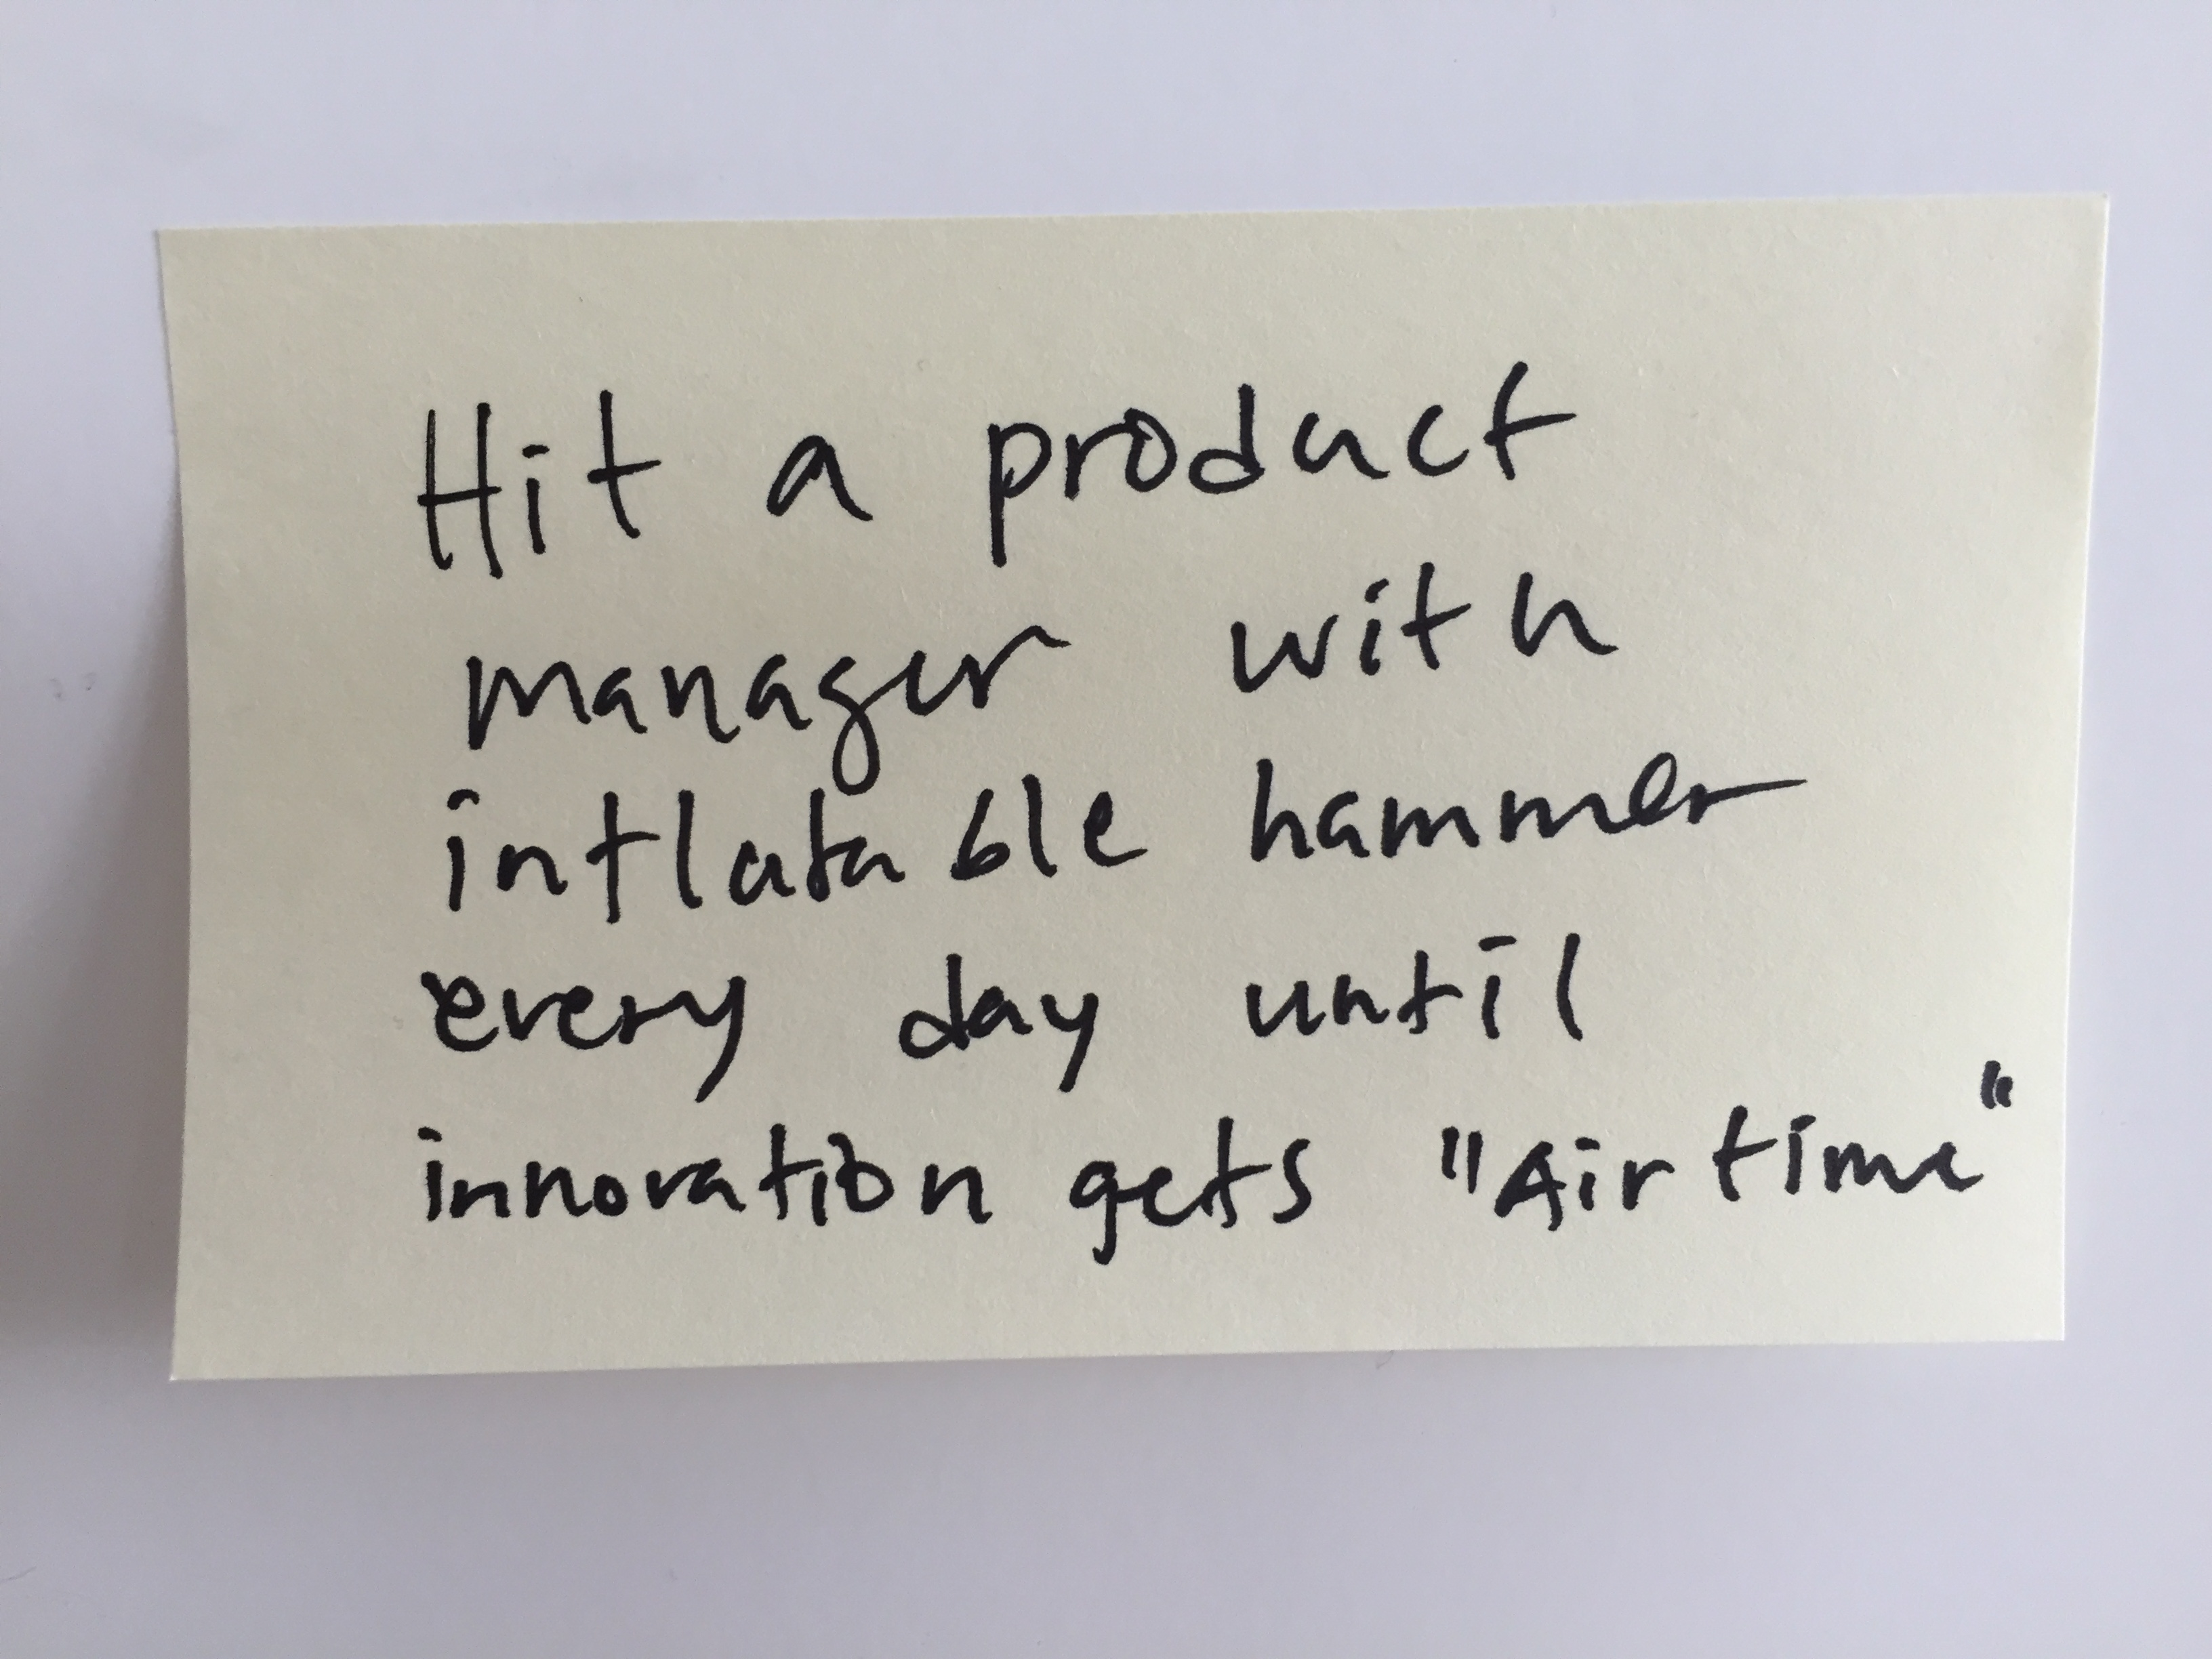 Hit a product
manager with
inflatable hammer
every day until
innovation gets "Airtime"